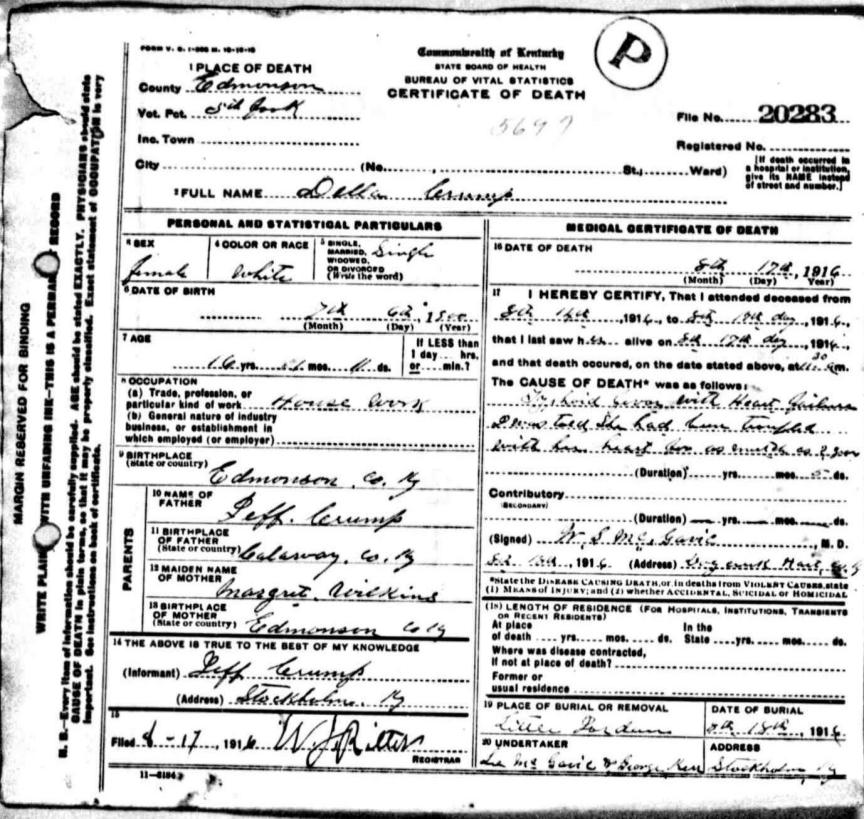 FORM V. S. 1-
Commonwealth of Kentucky
STATE BOARD OF HEALTH
BUREAU OF VITAL STATISTICS
CERTIFICATE OF DEATH
P
1 PLACE OF DEATH
County Edmonson
Vot. Pct.
Inc. Town
City (No. St., Ward)
File No. 20283
Registered No.
[If death occurred in a hospital or institution, give its NAME instead of street and number.]
2 FULL NAME Della Crump
PERSONAL AND STATISTICAL PARTICULARS
3 SEX female
4 COLOR OR RACE White
5 SINGLE, MARRIED, WIDOWED, OR DIVORCED (Write the word) Single
6 DATE OF BIRTH
7th 6th 1900
(Month) (Day) (Year)
7 AGE
16 yrs. mos. 11 ds.
If LESS than 1 day hrs. or min.?
8 OCCUPATION
(a) Trade, profession, or particular kind of work House work
(b) General nature of industry business, or establishment in which employed (or employer)
9 BIRTHPLACE (State or country) Edmonson Co. Ky
PARENTS
10 NAME OF FATHER Jeff Crump
11 BIRTHPLACE OF FATHER (State or country) Calaway, Co. Ky
12 MAIDEN NAME OF MOTHER Margret Wilkins
13 BIRTHPLACE OF MOTHER (State or country) Edmonson Co Ky
14 THE ABOVE IS TRUE TO THE BEST OF MY KNOWLEDGE
(Informant) Jeff Crump
(Address) Stockholm, Ky
15
Filed 8-17, 1916 W J Ritter
REGISTRAR
11-6184
MEDICAL CERTIFICATE OF DEATH
16 DATE OF DEATH
8th 17th, 1916
(Month) (Day) Year)
17 I HEREBY CERTIFY, That I attended deceased from
8th 14th, 1916, to 8th day, 1916,
that I last saw her alive on 8th 17th day, 1916,
and that death occured, on the date stated above, at m.
The CAUSE OF DEATH* was as follows:
Typhoid fever with Heart failure
I was told She had been troubled
with her heart for as much as 2 year
(Duration) yrs. mos. ds.
Contributory
(SECONDARY)
(Duration) yrs. mos. ds.
(Signed) W. S. M. D.
, 1916 (Address)
*State the DISEASE CAUSING DEATH, or, in deaths from VIOLENT CAUSES, state
(1) MEANS of INJURY; and (2) whether ACCIDENTAL, SUICIDAL or HOMICIDAL
(18) LENGTH OF RESIDENCE (FOR HOSPITALS, INSTITUTIONS, TRANSIENTS OR RECENT RESIDENTS)
At place of death yrs. mos. ds. In the State yrs. mos. ds.
Where was disease contracted, If not at place of death?
Former or usual residence
19 PLACE OF BURIAL OR REMOVAL
DATE OF BURIAL
8th 18th, 1916
20 UNDERTAKER
ADDRESS
& George Kerr Stockholm, Ky
MARGIN RESERVED FOR BINDING
WRITE PLAIN WITH UNFADING INK—THIS IS A PERMA RECORD
N. B.—Every item of information should be carefully supplied. AGE should be stated EXACTLY. PHYSICIANS should state
CAUSE OF DEATH in plain terms, so that it may be properly classified. Exact statement of OCCUPATION is very
important. See instructions on back of certificate.